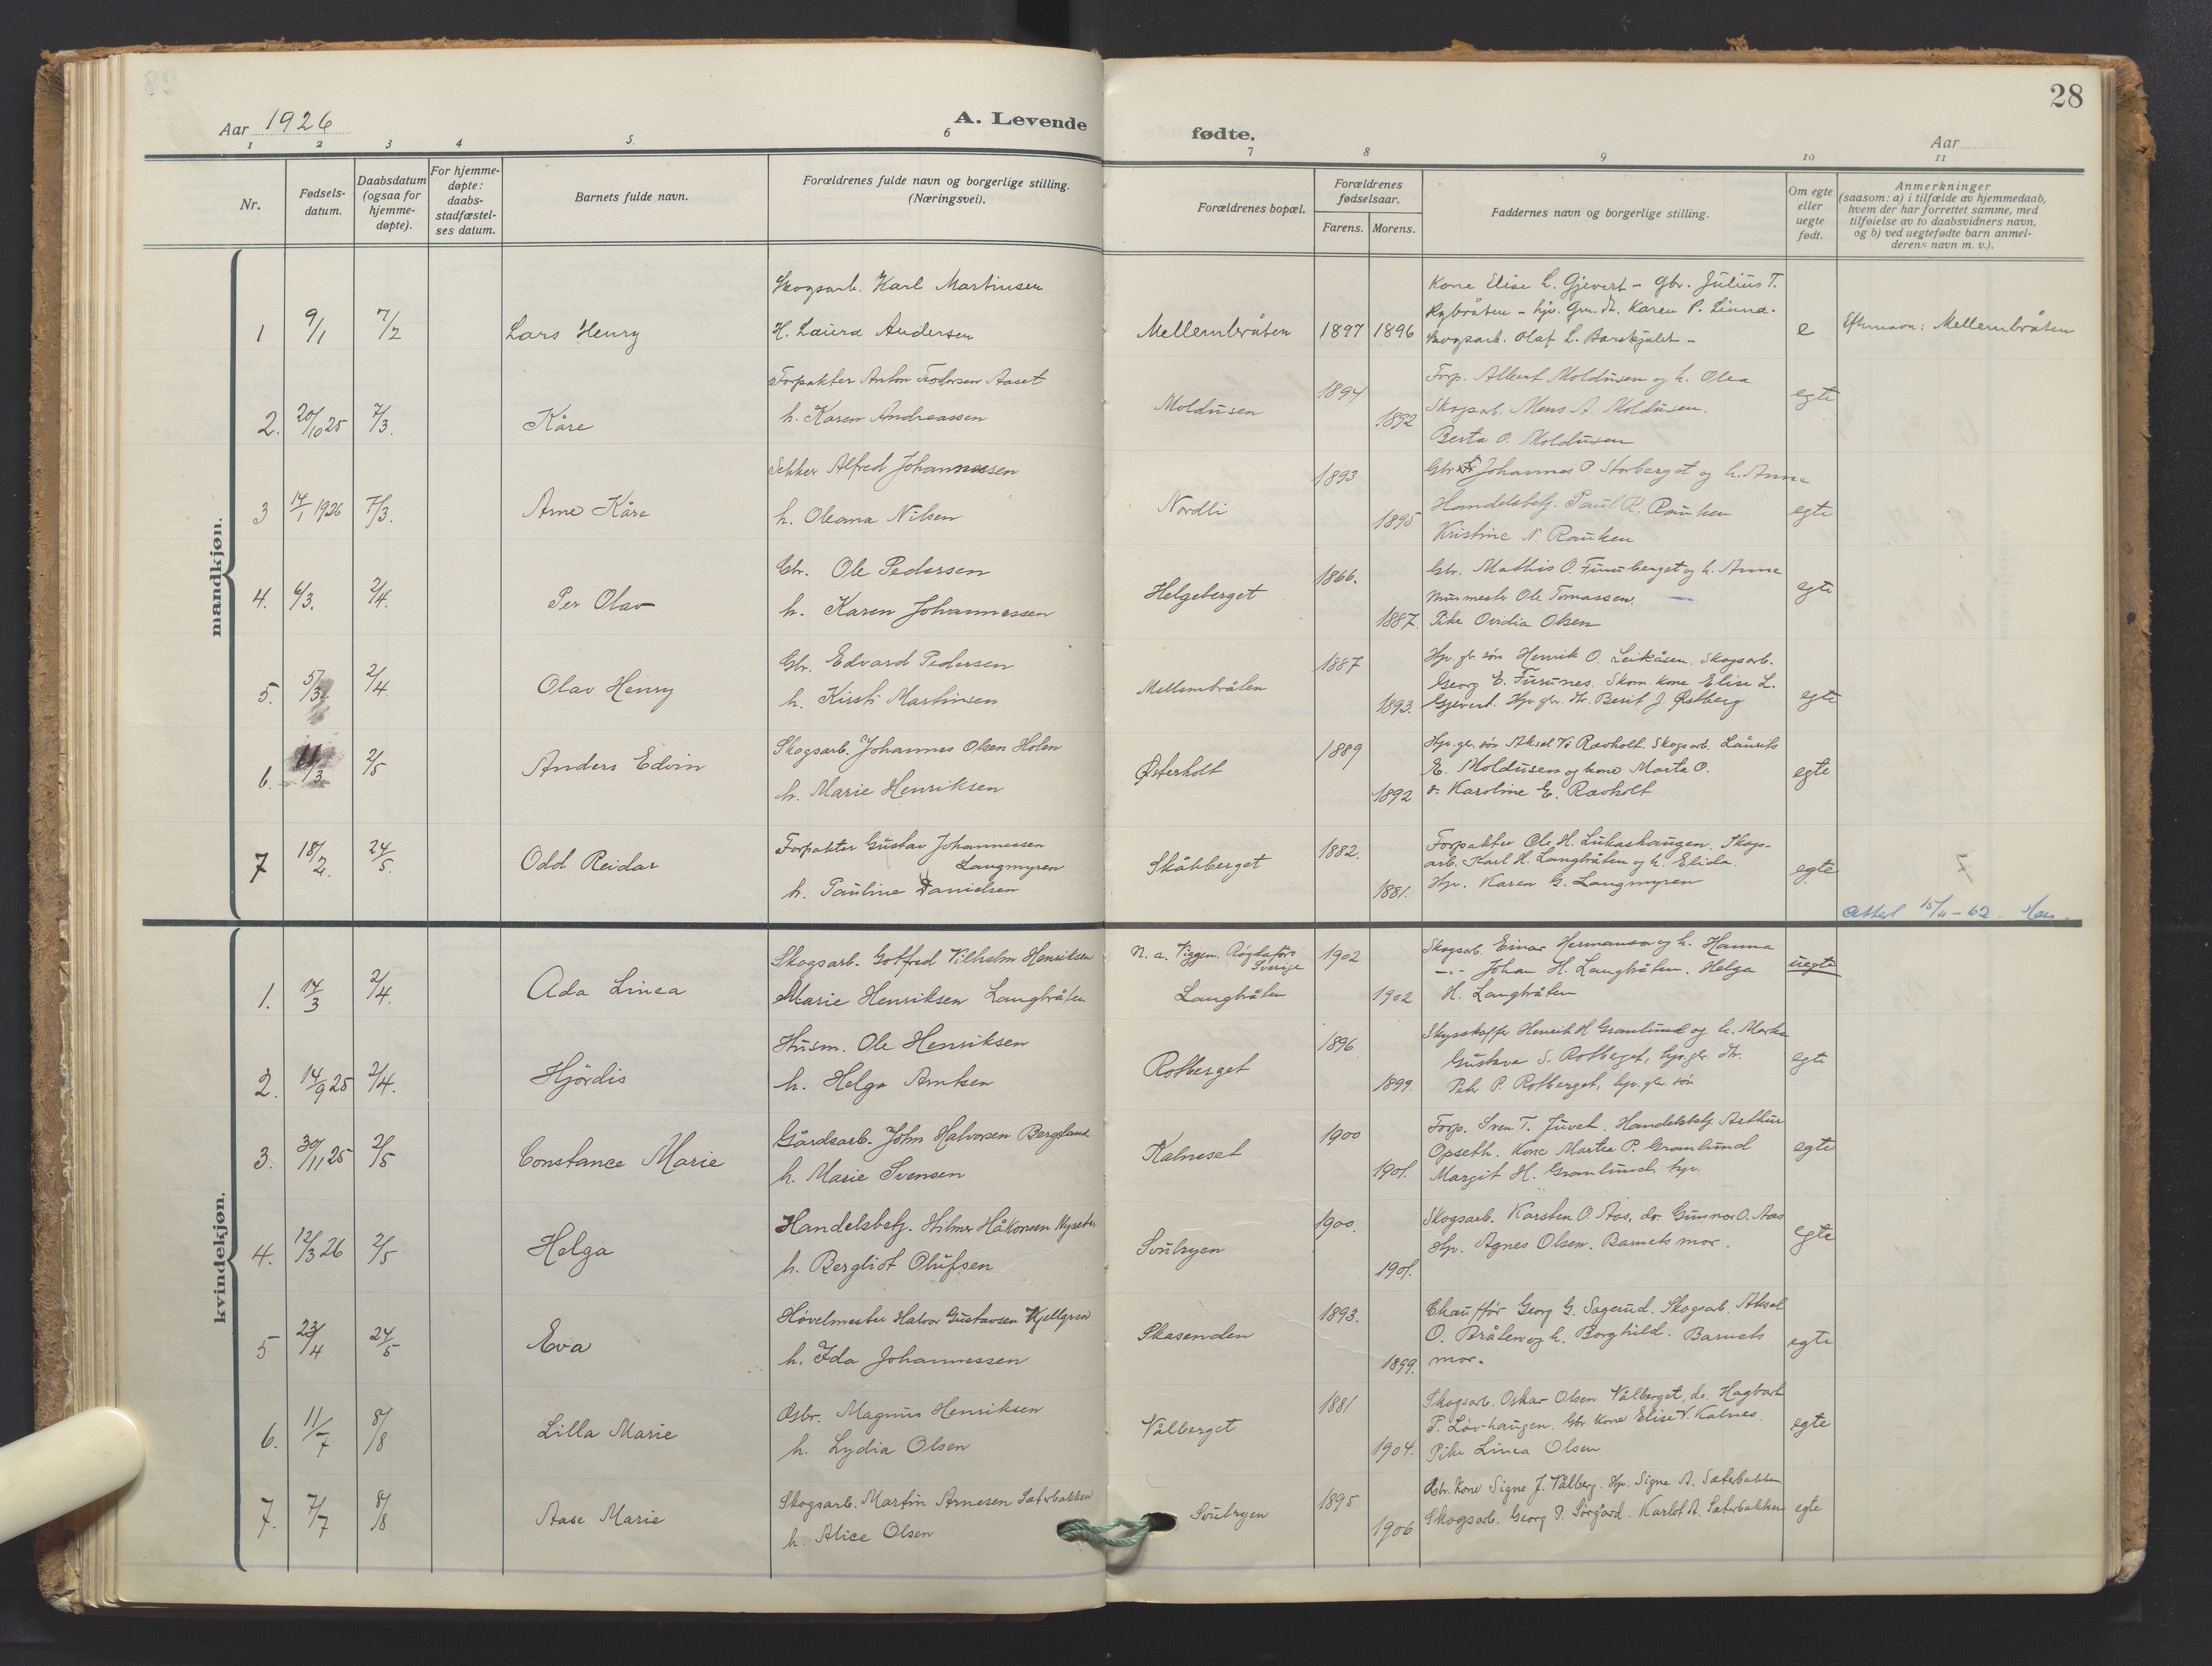 28
Aar 1926
A. Levende
fødte.
Aar
1 2 3 4 5 6 7 8 9 10 11
Nr.
Fødsels-
datum.
Daabsdatum
(ogsaa for
hjemme-
døpte).
For hjemme-
døpte:
daabs-
stadfæstel-
ses datum.
Barnets fulde navn.
Forældrenes fulde navn og borgerlige stilling.
(Næringsvei).
Forældrenes bopæl.
Forældrenes
fødselsaar.
Farens. Morens.
Faddernes navn og borgerlige stilling.
Om egte
eller
uegte
født.
Anmerkninger
(saasom: a) i tilfælde av hjemmedaab,
hvem der har forrettet samme, med
tilføielse av to daabsvidners navn,
og b) ved uegtefødte barn anmel-
derens navn m. v.).
mandkjøn.
1 9/1 7/2 Lars Henry
Skogsarb. Karl Martinsen
H. Laura Andersen
Mellembråten 1897 1896
Kone Elise L. Gjevert - gbr. Julius T.
Rybråten - hjv. Karen P. Linna-
Skogsarb. Olaf L. -
e
Efternavn: Mellembråten
2. 20/10 25 7/3. Kåre
Forpakter Anton Aaset
h. Karen Andreassen
Moldusen 1894 1892
Forp. Albert Moldusen og h. Olea
Skogsarb. Mons A. Moldusen.
Berta O. Moldusen
egte
3 14/1 1926 7/3. Arne Kåre
Alfred Johannessen
h. Oleana Nilsen
Nordli 1893 1895
Gbr. Johannes P. Storberget og h. Anna
Handelsbetj. Paul R. Rauken
Kristine N. Rauken
egte
4. 6/3. 2/4. Per Olav
Gbr. Ole Pedersen
h. Karen Johannessen
Helgeberget 1866. 1887.
Gbr. Mathis O. Furuberget og h. Anne
Murmester Ole Tomassen.
Pike Ovidia Olsen
egte
5. 5/3 2/4. Olav Henry
Gbr. Edvard Pedersen
h. Kirsti Martinsen
Mellembråten 1887 1893.
Hjv. gbr. søn Henrik O. Leikåsen. Skogsarb.
Georg E. Furunes. Skom. kone Elise L.
Gjevert. Hjv. gbr. dt. Berit J. Østberg
egte
6. 11/3 2/5 Anders Edvin
Skogsarb. Johannes Olsen Holen
h. Marie Henriksen
Østerholt 1889 1892
Hjv. gbr. søn Aksel K. Ravholt. Skogsarb. Laurits
E. Moldusen og kone Marta O.
Karoline E. Ravholt
egte
7 18/2. 24/5. Odd Reidar
Forpakter Gustav Johannessen
Langmyren
h. Pauline Danielsen
Skåkberget 1882. 1881.
Forpakter Ole H. Lukashaugen. Skogs-
arb. Karl H. Langbråten og h. Elida.
Hjv. Karen G. Langmyren
egte
Attest 15/11-62
kvindekjøn.
1. 14/3 2/4. Ada Linea
Skogsarb. Gotfred Vilhelm Henriksen
Marie Henriksen Langbråten
N. a. Viggen. Røgdåfors
Sverige
Langbråten 1902 1902
Skogsarb. Einar Hermansen og h. Hanna
-"- Johan H. Langbråten. Helga
H. Langbråten
uegte
2. 14/9 25 2/4. Hjördis
Husm. Ole Henriksen
h. Helga Arntsen
Rotberget 1896 1899.
Skysskaffer Henrik H Granlund og h. Marka
Gustava S. Rotberget, hjv. gbr. dt.
Petr P. Rotberget, hjv. gbr. søn
egte
3. 30/11 25 2/5 Constance Marie
Gårdsarb. John Halvorsen Bergsland
h. Marie Svensen
Kalneset 1900 1901.
Forp. Sven T. Juvet. Handelsbetj. Arthur
Opseth. Kone Martea P. Granlund
Margit H. Granlund hjv.
egte
4. 12/3 26 2/5 Helga
Handelsbetj. Hilmar Håkonsen Nyseter
h. Bergliot Olufsen
Svulryen 1900. 1901.
Skogsarb. Karsten O. Aas, do Gunnar O. Aas
Hjv. Agnes Olsen. Barnets mor.
egte
5 23/4 24/5 Eva
Høvelmester Halvor Gustavsen Kjellgren
h. Ida Johannessen
Skasenden 1893. 1899.
Chauffør Georg G. Sagerud. Skogsarb. Aksel
O. Bråten og h. Borghild. Barnets
mor.
egte
6. 11/7 8/8 Lilla Marie
Gbr. Magnus Henriksen
h. Lydia Olsen
Vålberget 1881 1904.
Skogsarb. Oskar Olsen Vålberget, do. Hagbart
P. Løvhaugen. Gbr. kone Elise V. Kalnes.
Pike Linea Olsen
egte
7. 7/7 8/8 Aase Marie
Skogsarb. Martin Arnesen Sæterbakken
h. Alice Olsen
Svulryen 1895 1906
Gbr. Kone Signe J. Vålberg. Hjv. Signe A. Sæterbakken
Skogsarb. Georg P. Sørgård. Karlot A. Sæterbakken
egte